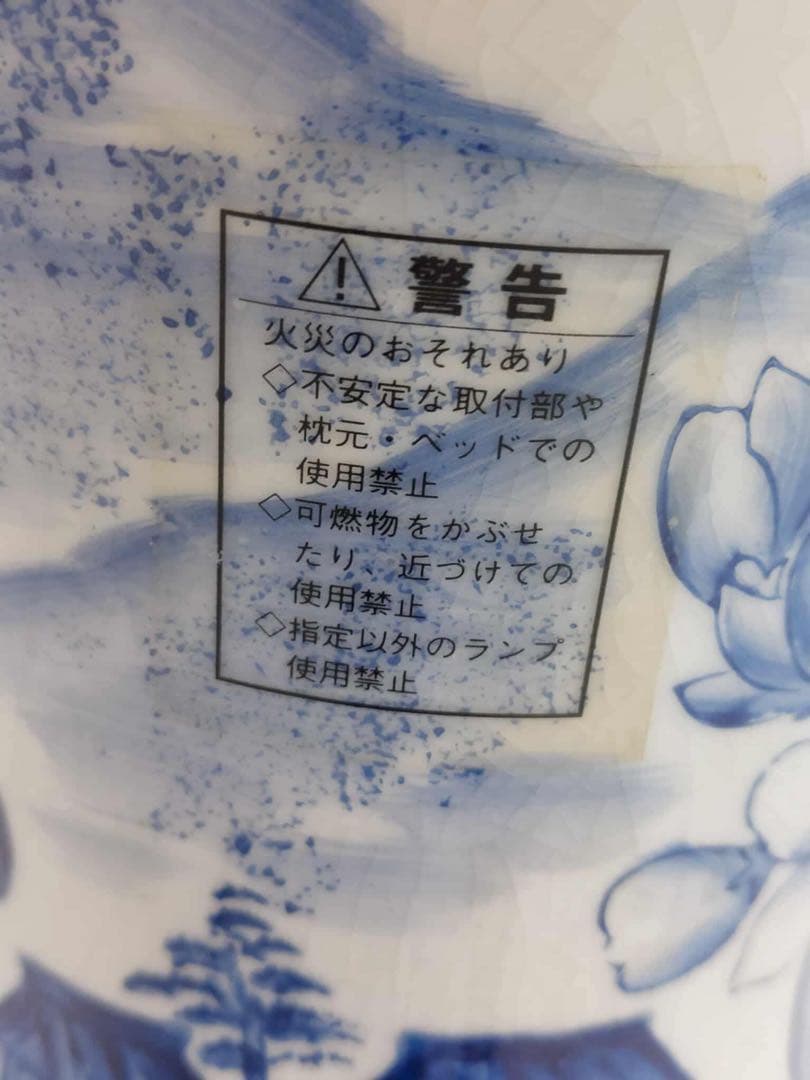 警告
火災のおそれあり
◇不安定な取付部や
枕元・ベッドでの
使用禁止
◇可燃物をかぶせ
たり、近づけての
使用禁止
◇指定以外のランプ
使用禁止